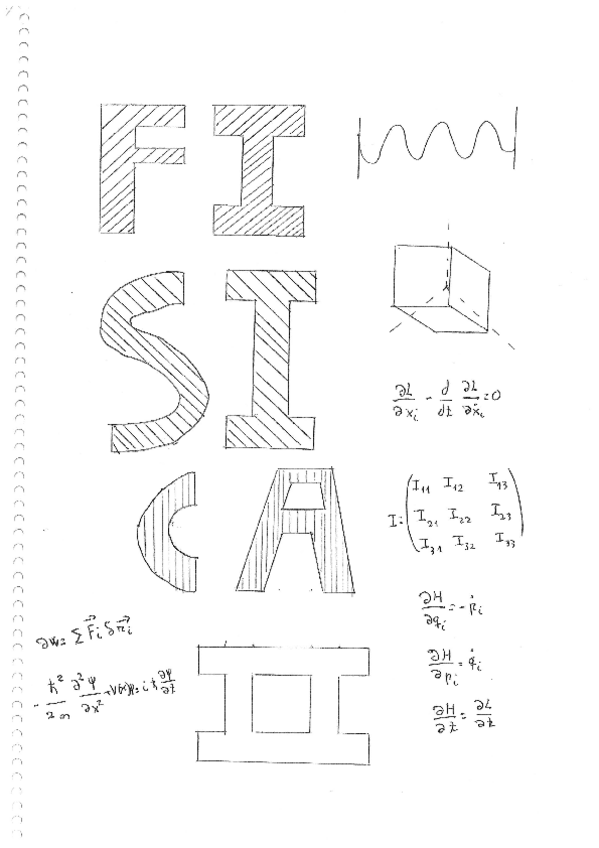 FI
SI
CA
II
∂L/∂x_i - d/dt ∂L/∂ẋ_i = 0
I = (I_11 I_12 I_13
I_21 I_22 I_23
I_31 I_32 I_33)
∂H/∂q_i = -ṗ_i
∂H/∂p_i = q̇_i
∂H/∂t = ∂L/∂t
∂W = Σ F⃗_i δr⃗_i
-ħ²/2m ∂²ψ/∂x² + V(x)ψ = iħ ∂ψ/∂t